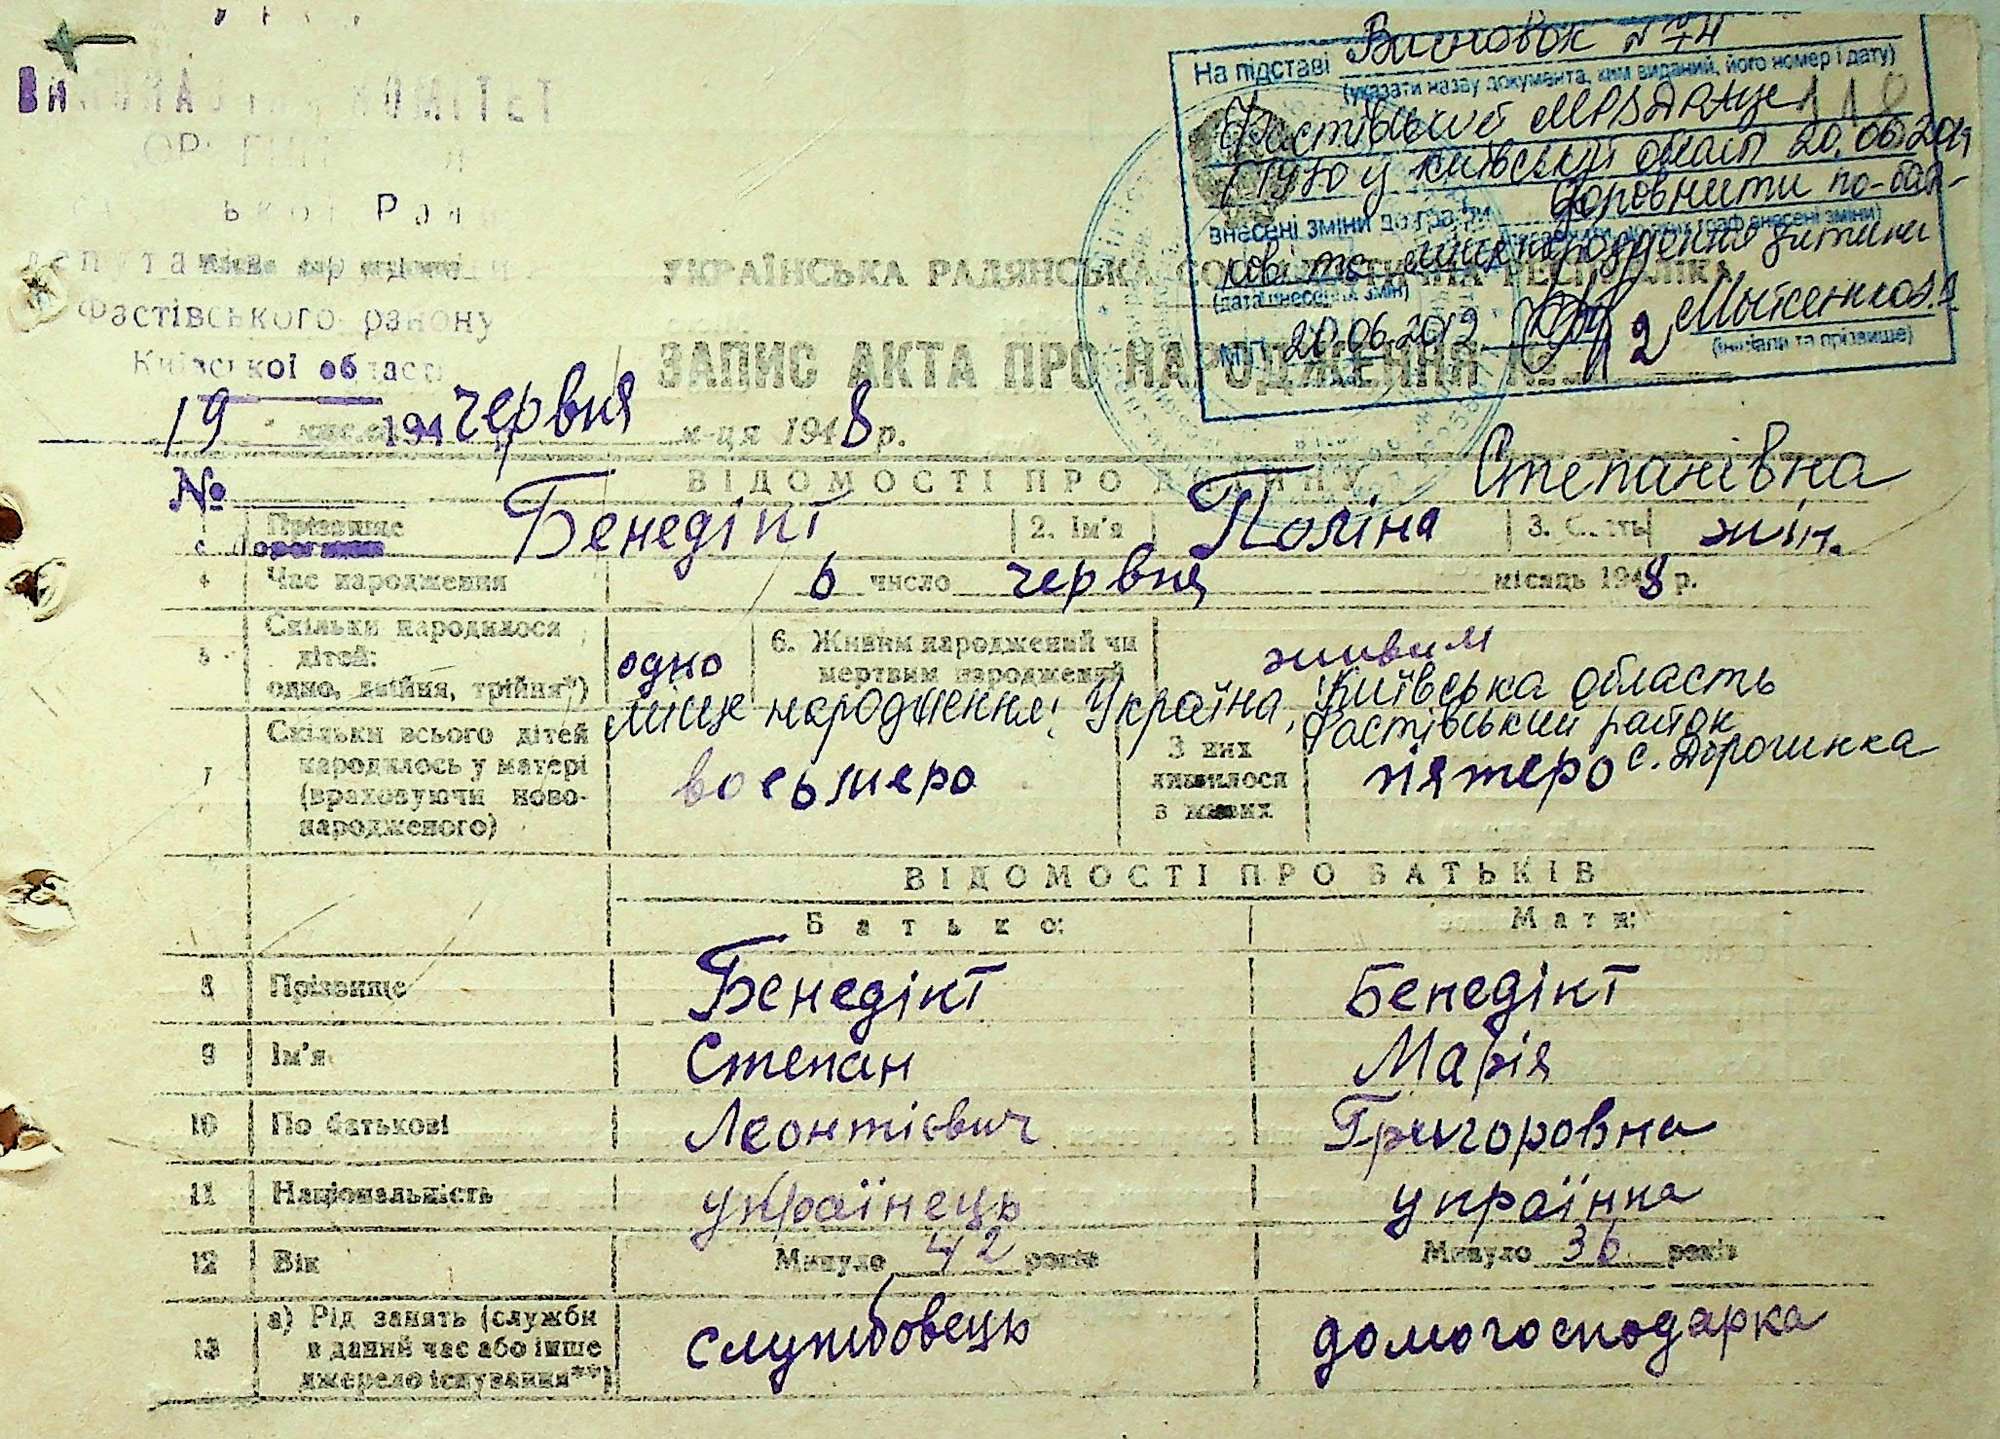 На підставі Висновок №74
(указати назву документа, ким виданий, його номер і дату)
Фастівський
у Київській області 20.06.2012
внесені зміни до графи доповнити по-бать-
кові та місце народження дитини
(дата внесення змін)
20.06.2012
(ініціали та прізвище)
ВИКОНАВЧИЙ КОМІТЕТ
ької Ради
депутатів
Фастівського району
Київської області
УКРАЇНСЬКА РАДЯНСЬКА СОЦІАЛІСТИЧНА РЕСПУБЛІКА
ЗАПИС АКТА ПРО НАРОДЖЕННЯ №
19 194 червня м-ця 1948 р.
№
ВІДОМОСТІ ПРО ДИТИНУ Степанівна
1 Прізвище Бенедікт 2. Ім'я Поліна 3. Стать жін.
4 Час народження 6 число червня місяць 1948 р.
5 Скільки народилося дітей: одно, двійня, трійня*) одно 6. Живим народжений чи мертвим народжений живим
Місце народження: Україна, Київська область
Фастівський район
с. Дорогинка
7 Скільки всього дітей народилось у матері (враховуючи ново-народженого) восьмеро З них лишилося в живих пятеро
ВІДОМОСТІ ПРО БАТЬКІВ
Батько: Мати:
8 Прізвище Бенедікт Бенедікт
9 Ім'я Степан Марія
10 По батькові Леонтієвич Григоровна
11 Національність українець українка
12 Вік Минуло 42 років Минуло 36 років
13 а) Рід занять (служби в даний час або інше джерело існування**) службовець домогосподарка